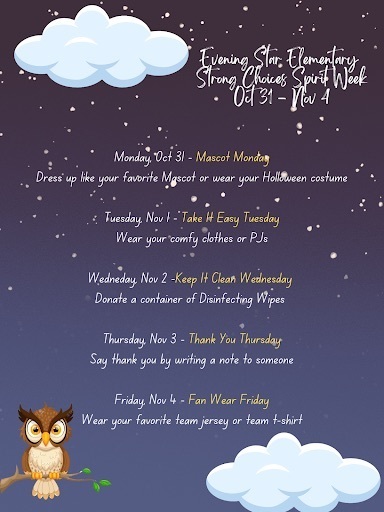 Evening Star Elementary
Strong Choices Spirit Week
Oct 31 - Nov 4
Monday, Oct 31 - Mascot Monday
Dress up like your favorite Mascot or wear your Holloween costume
Tuesday, Nov 1 - Take It Easy Tuesday
Wear your comfy clothes or PJs
Wedneday, Nov 2 -Keep It Clean Wednesday
Donate a container of Disinfecting Wipes
Thursday, Nov 3 - Thank You Thursday
Say thank you by writing a note to someone
Friday, Nov 4 - Fan Wear Friday
Wear your favorite team jersey or team t-shirt